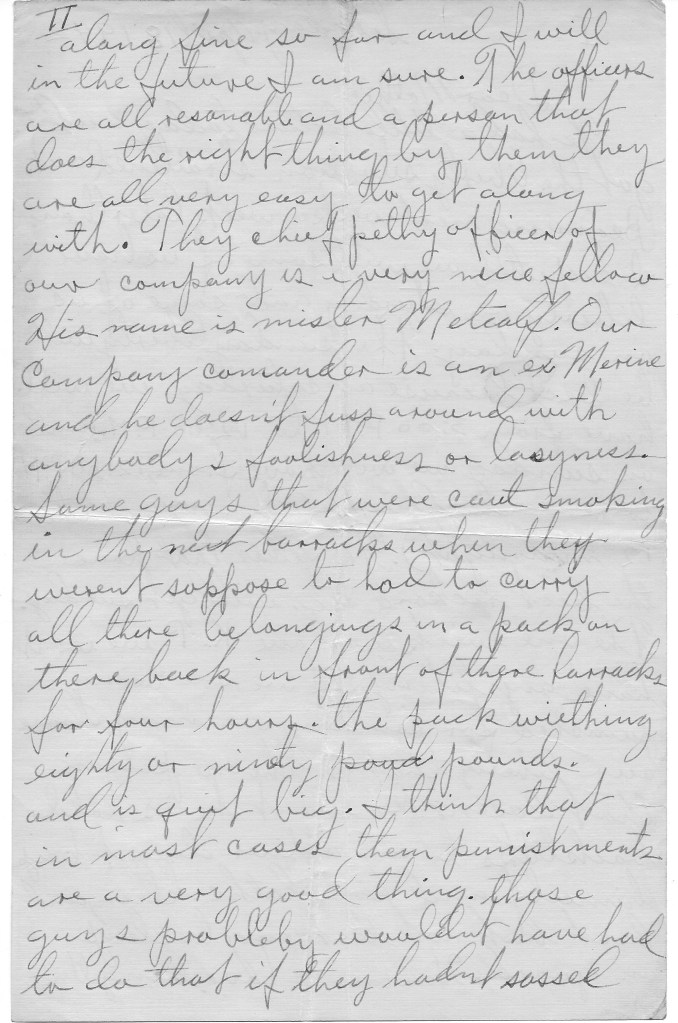 II
along fine so far and I will
in the future I am sure. The officers
are all resonabl and a person that
does the right thing by them they
are all very easy to get along
with. They chief pethy officer of
our company is a very nice fellow
His name is mister Metcalf. Our
Company comander is an ex Merine
and he doesn't fuss around with
anybodys foolishness or lasyness.
Some guys that were caut smoking
in the next barracks when they
werent suppose to had to carry
all there belongings in a pack on
there back in front of there barracks
for four hours. the pack wiething
eighty or ninty poud pounds.
and is quit big. I think that
in most cases them punishments
are a very good thing. those
guys probleby wouldnt have had
to do that if they hadnt sassed